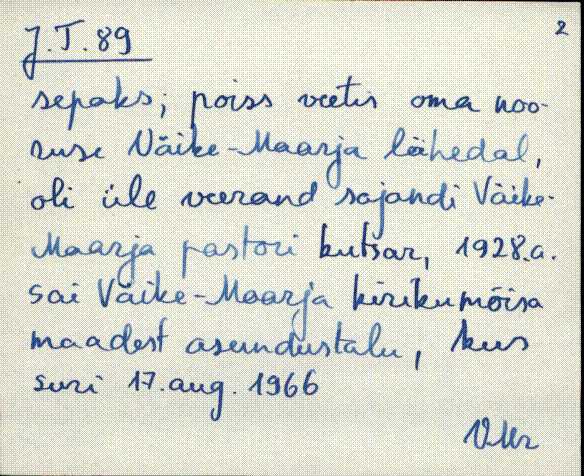 J.T.89
2
sepaks; poiss veetis oma noo-
ruse Väike-Maarja lähedal,
oli üle veerand sajandi Väike-
Maarja pastori kutsar, 1928.a.
sai Väike-Maarja kirikumõisa
maadest asundustalu, kus
suri 17.aug. 1966